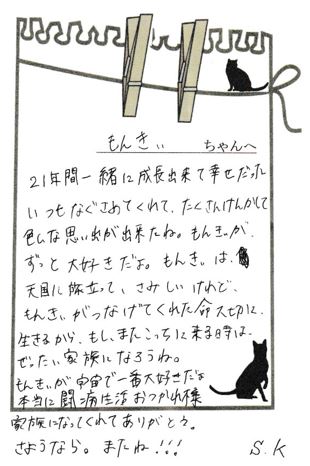 もんきぃ ちゃんへ
21年間一緒に成長出来て幸せだった
いつもなぐさめてくれて、たくさんけんかして
色んな思い出が出来たね。もんきぃが、
ずっと大好きだよ。もんきぃは、
天国に旅立って、さみしいけれど、
もんきぃがつなげてくれた命大切に、
生きるから、もし、またこっちに来る時は、
ぜったい家族になろうね。
もんきぃが宇宙で一番大好きだよ
本当に闘病生活おつかれ様
家族になってくれてありがとう。
さようなら。またね!!!
S.K